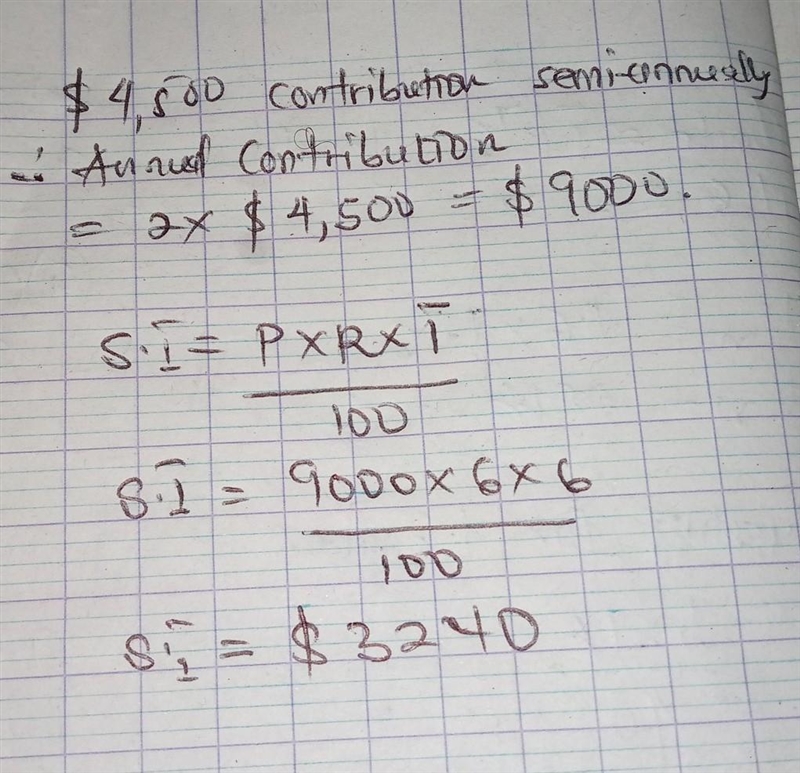 $ 4,500 contribution semi-annually
∴ Annual Contribution
= 2x $ 4,500 = $ 9000.
S.I = P x R x T
100
S.I = 9000 x 6 x 6
100
S.I = $ 3240